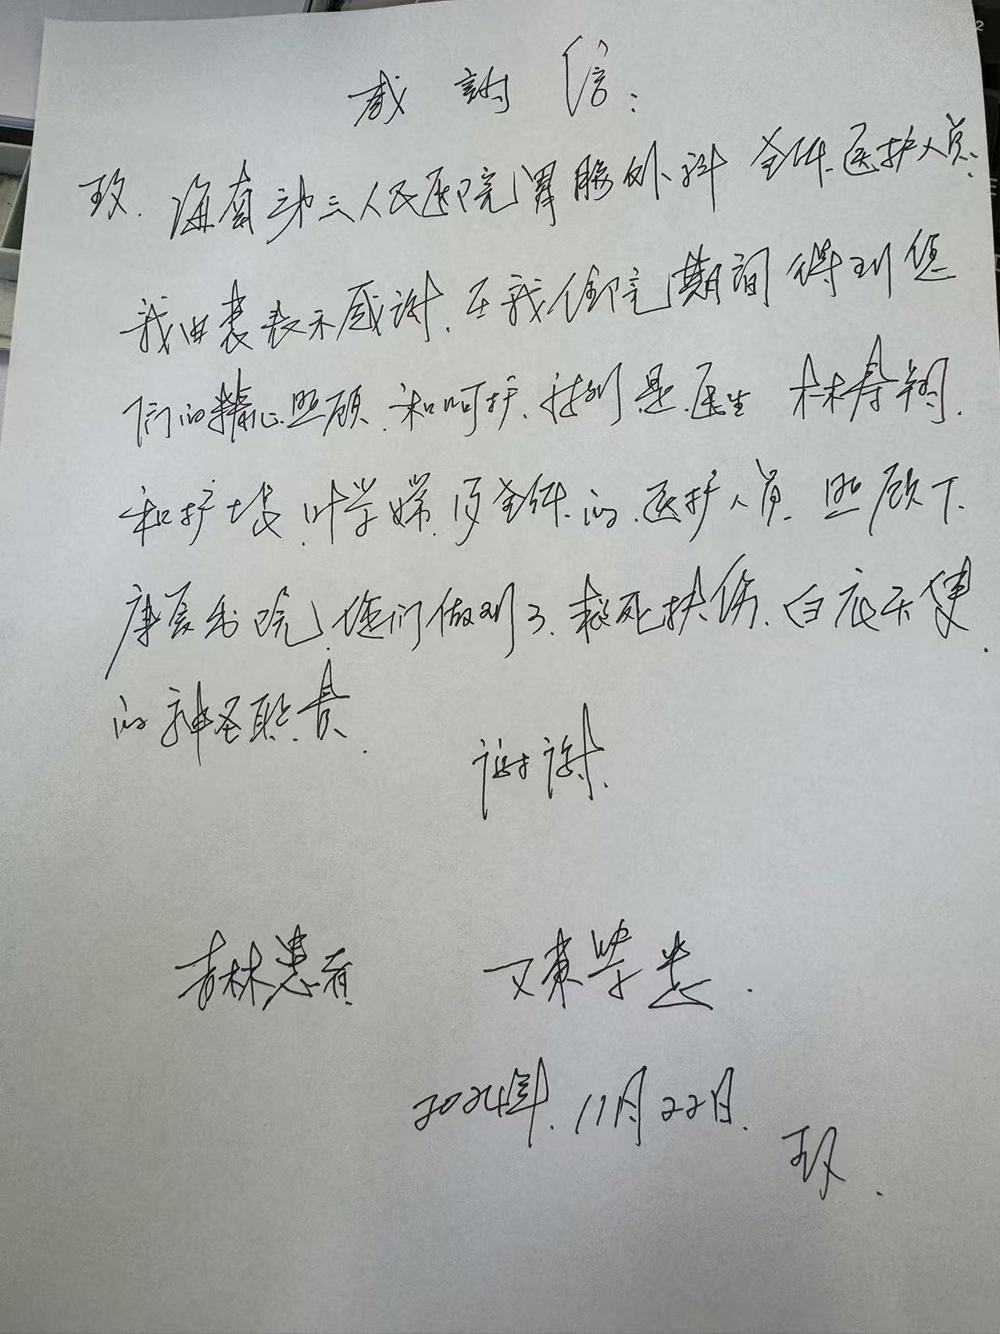 感谢信:
致.海南第三人民医院胃肠外科 全体.医护人员:
我由衷表示感谢.在我住院期间得到您
们的精心照顾.和呵护.特别是.医生 林寿
和护士长.叶学嫦.及全体.的.医护人员.照顾下.
康复出院.您们做到了.救死扶伤.白衣天使.
的神圣职责.
谢谢.
吉林患者 陈学忠.
2024年.11月22日.
致.